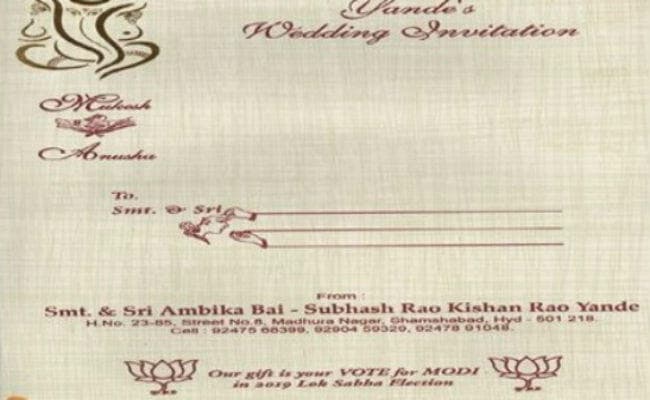 Yande's
Wedding Invitation
Mukesh
Anusha
To,
Smt. & Sri
From :
Smt. & Sri Ambika Bai - Subhash Rao Kishan Rao Yande
H.No. 23-85, Street No.8, Madhura Nagar, Shamshabad, Hyd - 501 218.
Call : 92475 66399, 92904 59329, 92478 91048.
Our gift is your VOTE for MODI
in 2019 Lok Sabha Election